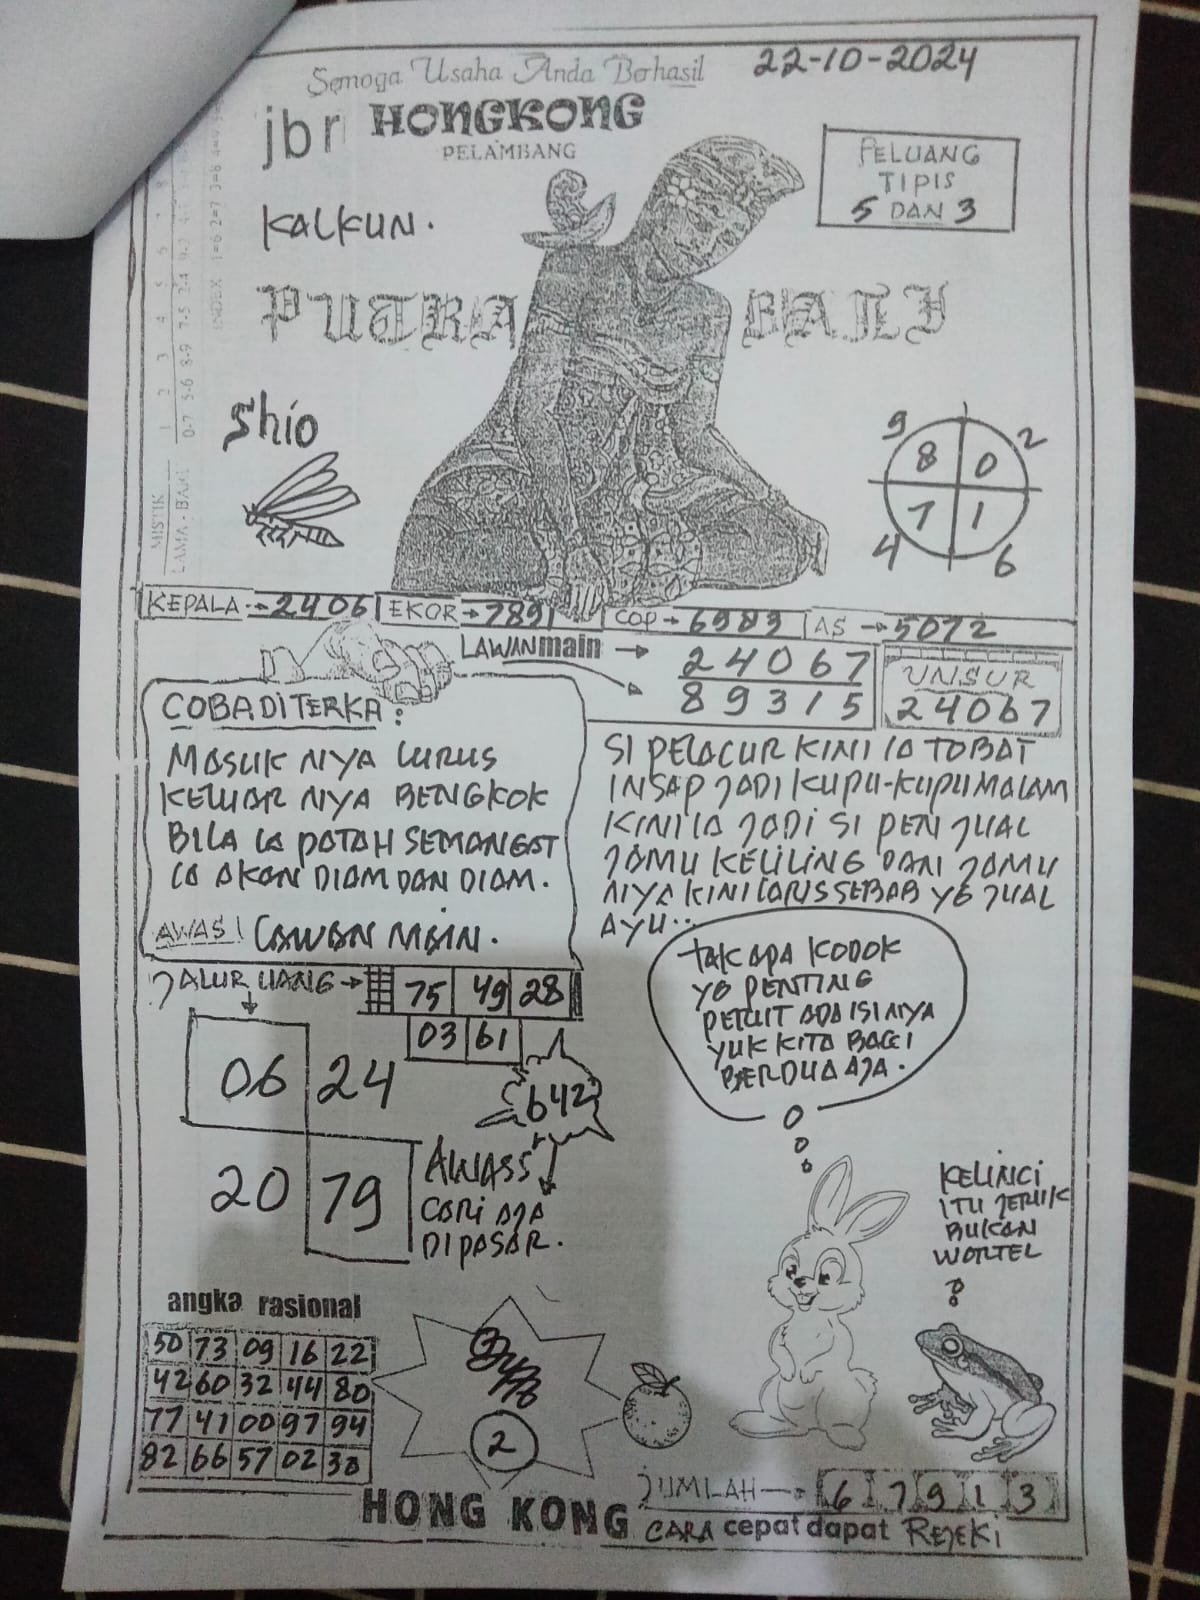 Semoga Usaha Anda Berhasil
22-10-2024
jbr HONGKONG
PELAMBANG
PELUANG
TIPIS
5 DAN 3
KALKUN.
PUTRA BALI
Shio
9 2
8 0
7 1
4 6
MISTIK
LAMA - BARU
0-7 5-6 8-9 7-5 2-4
INDEX 1=6 2=7 3=8 4=9
KEPALA → 2406 EKOR → 7891 COP → 6983 AS → 5072
LAWAN main →
24067
89315
UNSUR
24067
COBA DITERKA :
MASUK NYA LURUS
KELUAR NYA BENGKOK
BILA IA PATAH SEMANGAT
IA AKAN DIAM DAN DIAM.
AWAS! LAWAN MAIN.
SI PELACUR KINI IA TOBAT
INSAP JADI KUPU-KUPU MALAM
KINI IA JADI SI PENJUAL
JAMU KELILING DAN JAMU
NYA KINI LARIS SEBAB YG JUAL
AYU..
JALUR UANG → 75 49 28
03 61
06 24
20 79
642
AWASS
CARI AJA
DIPASAR.
TAK APA KODOK
YG PENTING
PERUT ADA ISI NYA
YUK KITA BAGI
BERDUA AJA.
KELINCI
ITU JERUK
BUKAN
WORTEL
angka rasional
50 73 09 16 22
42 60 32 44 80
77 41 00 97 94
82 66 57 02 38
2
JUMLAH → 6 7 9 1 3
HONG KONG
CARA cepat dapat REJEKI